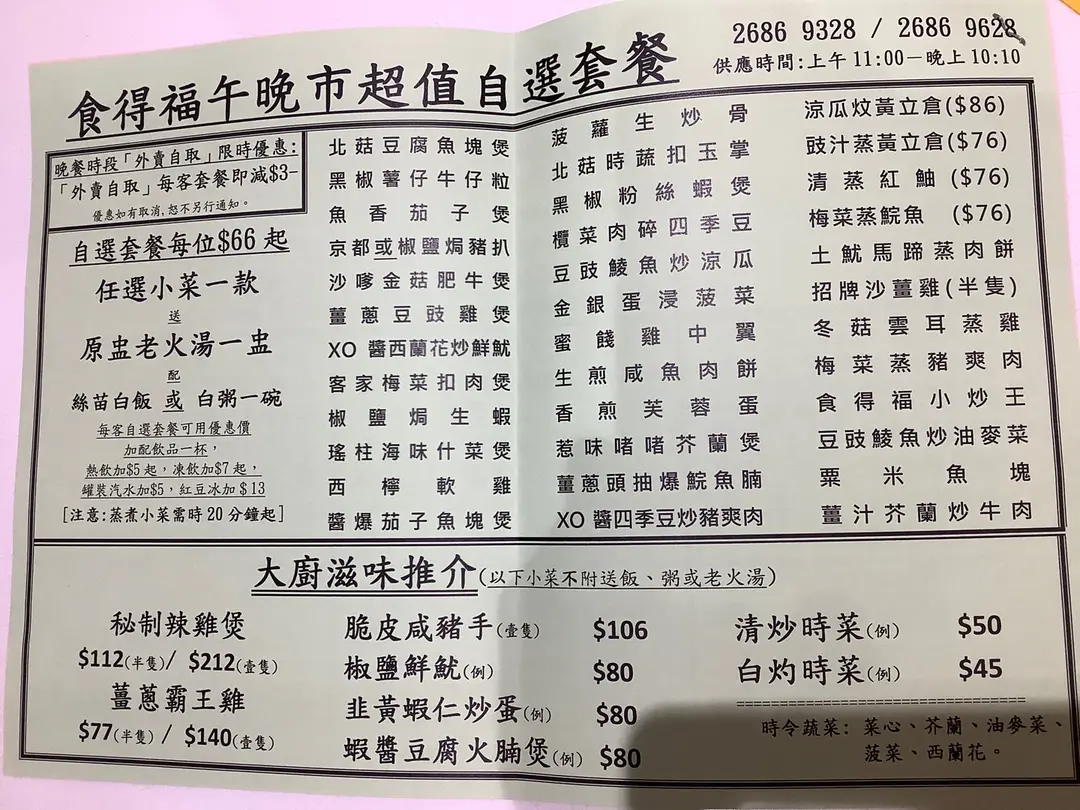 2686 9328 / 2686 9628
供應時間:上午11:00－晚上10:10
食得福午晚市超值自選套餐
晚餐時段「外賣自取」限時優惠:
「外賣自取」每客套餐即減$3-
優惠如有取消,恕不另行通知。
自選套餐每位$66起
任選小菜一款
送
原盅老火湯一盅
配
絲苗白飯 或 白粥一碗
每客自選套餐可用優惠價
加配飲品一杯，
熱飲加$5起，凍飲加$7起，
罐裝汽水加$5，紅豆冰加$13
[注意:蒸煮小菜需時20分鐘起]
北菇豆腐魚塊煲
黑椒薯仔牛仔粒
魚香茄子煲
京都或椒鹽焗豬扒
沙嗲金菇肥牛煲
薑蔥豆豉雞煲
XO醬西蘭花炒鮮魷
客家梅菜扣肉煲
椒鹽焗生蝦
瑤柱海味什菜煲
西檸軟雞
醬爆茄子魚塊煲
菠蘿生炒骨
北菇時蔬扣玉掌
黑椒粉絲蝦煲
欖菜肉碎四季豆
豆豉鯪魚炒涼瓜
金銀蛋浸菠菜
蜜餞雞中翼
生煎咸魚肉餅
香煎芙蓉蛋
惹味啫啫芥蘭煲
薑蔥頭抽爆鯇魚腩
XO醬四季豆炒豬爽肉
涼瓜炆黃立倉($86)
豉汁蒸黃立倉($76)
清蒸紅鮋 ($76)
梅菜蒸鯇魚 ($76)
土魷馬蹄蒸肉餅
招牌沙薑雞(半隻)
冬菇雲耳蒸雞
梅菜蒸豬爽肉
食得福小炒王
豆豉鯪魚炒油麥菜
粟米魚塊
薑汁芥蘭炒牛肉
大廚滋味推介(以下小菜不附送飯、粥或老火湯)
秘制辣雞煲
$112(半隻)/ $212(壹隻)
薑蔥霸王雞
$77(半隻) / $140(壹隻)
脆皮咸豬手(壹隻) $106
椒鹽鮮魷(例) $80
韭黃蝦仁炒蛋(例) $80
蝦醬豆腐火腩煲(例) $80
清炒時菜(例) $50
白灼時菜(例) $45
時令蔬菜: 菜心、芥蘭、油麥菜、
菠菜、西蘭花。